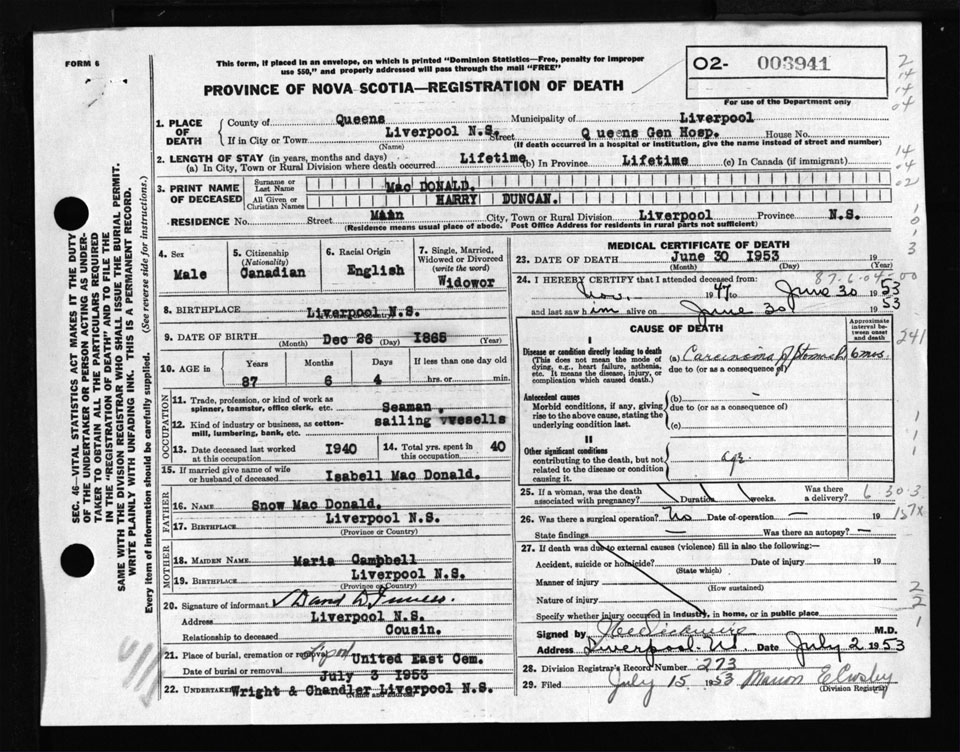 FORM 6
This form, if placed in an envelope, on which is printed "Dominion Statistics—Free, penalty for improper
use $50," and properly addressed will pass through the mail "FREE"
O2- 003941
For use of the Department only
PROVINCE OF NOVA SCOTIA—REGISTRATION OF DEATH
1. PLACE OF DEATH County of Queens Municipality of Liverpool
If in City or Town Liverpool N.S. Street Queens Gen Hosp. House No.
(Name) (If death occurred in a hospital or institution, give the name instead of street and number)
2. LENGTH OF STAY (in years, months and days)
(a) In City, Town or Rural Division where death occurred Lifetime (b) In Province Lifetime (c) In Canada (if immigrant)
3. PRINT NAME OF DECEASED
Surname or Last Name Mac DONALD.
All Given or Christian Names HARRY DUNCAN.
RESIDENCE No. Street Main City, Town or Rural Division Liverpool Province N.S.
(Residence means usual place of abode. Post Office Address for residents in rural parts not sufficient)
4. Sex Male
5. Citizenship (Nationality) Canadian
6. Racial Origin English
7. Single, Married, Widowed or Divorced (write the word) Widowor
8. BIRTHPLACE Liverpool N.S.
9. DATE OF BIRTH Dec 26 I865
(Month) (Day) (Year)
10. AGE in Years Months Days If less than one day old
87 6 4 hrs. or min.
OCCUPATION
11. Trade, profession, or kind of work as
spinner, teamster, office clerk, etc. Seaman.
12. Kind of industry or business, as cotton-
mill, lumbering, bank, etc. sailing vvesells
13. Date deceased last worked at this occupation I940
14. Total yrs. spent in this occupation 40
15. If married give name of wife
or husband of deceased Isabell Mac Donald.
FATHER
16. NAME Snow Mac Donald.
17. BIRTHPLACE Liverpool N.S.
(Province or Country)
MOTHER
18. MAIDEN NAME Maria Campbell
19. BIRTHPLACE Liverpool N.S.
(Province or Country)
20. Signature of informant
Address Liverpool N.S.
Relationship to deceased Cousin.
21. Place of burial, cremation or removal United East Cem.
Date of burial or removal July 3 I953
22. UNDERTAKER Wright & Chandler Liverpool N.S.
(Name and address)
MEDICAL CERTIFICATE OF DEATH
23. DATE OF DEATH June 30 I953
(Month) (Day) (Year)
24. I HEREBY CERTIFY that I attended deceased from:
87-6-04-00
Nov. 1947 to June 30 1953
and last saw him alive on June 30 1953
CAUSE OF DEATH
Approximate interval between onset and death
I
Disease or condition directly leading to death
(This does not mean the mode of
dying, e.g., heart failure, asthenia,
etc. It means the disease, injury, or
complication which caused death.)
(a) Carcinoma of Stomach 6 mos.
due to (or as a consequence of)
Antecedent causes
Morbid conditions, if any, giving
rise to the above cause, stating the
underlying condition last.
(b)
due to (or as a consequence of)
(c)
II
Other significant conditions
contributing to the death, but not
related to the disease or condition
causing it.
age
25. If a woman, was the death associated with pregnancy? Duration weeks. Was there a delivery?
26. Was there a surgical operation? No Date of operation — 19
State findings — Was there an autopsy? —
27. If death was due to external causes (violence) fill in also the following:—
Accident, suicide or homicide? Date of injury 19
(State which)
Manner of injury
(How sustained)
Nature of injury
Specify whether injury occurred in industry, in home, or in public place
Signed by M.D.
Address Liverpool N.S. Date July 2 1953
28. Division Registrar's Record Number 273
29. Filed July 15 1953 Marion E Crosby
(Division Registrar)
SEC. 46—VITAL STATISTICS ACT MAKES IT THE DUTY
OF THE UNDERTAKER OR PERSON ACTING AS UNDER-
TAKER TO OBTAIN ALL THE PARTICULARS REQUIRED
IN THE "REGISTRATION OF DEATH" AND TO FILE THE
SAME WITH THE DIVISION REGISTRAR WHO SHALL ISSUE THE BURIAL PERMIT.
WRITE PLAINLY WITH UNFADING INK. THIS IS A PERMANENT RECORD.
Every item of information should be carefully supplied. (See reverse side for instructions.)
2
14
14
04
14
04
02
1
0
1
3
241
1
1
1
6 30 3
157X
2
2
1